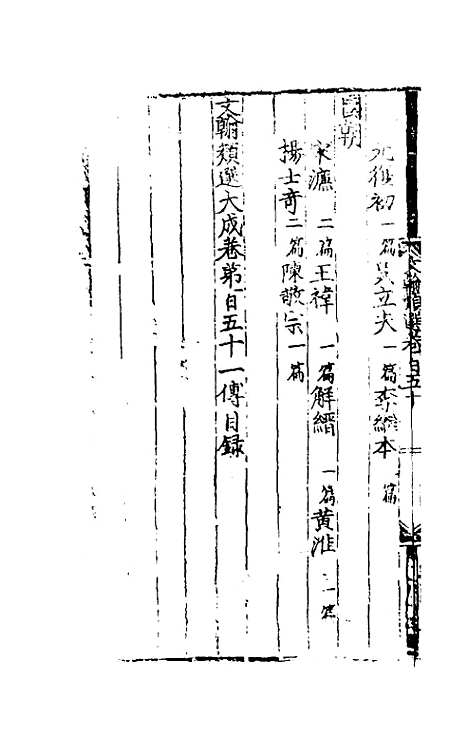 元復初 一篇 吴立夫 一篇 李繼本 一篇
國朝
宋濂 二篇 王禕 一篇 解縉 一篇 黄淮 一篇
揚士奇 二篇 陳敬宗 一篇
文翰類選大成卷第一百五十一傳目録
文翰類選卷百五十